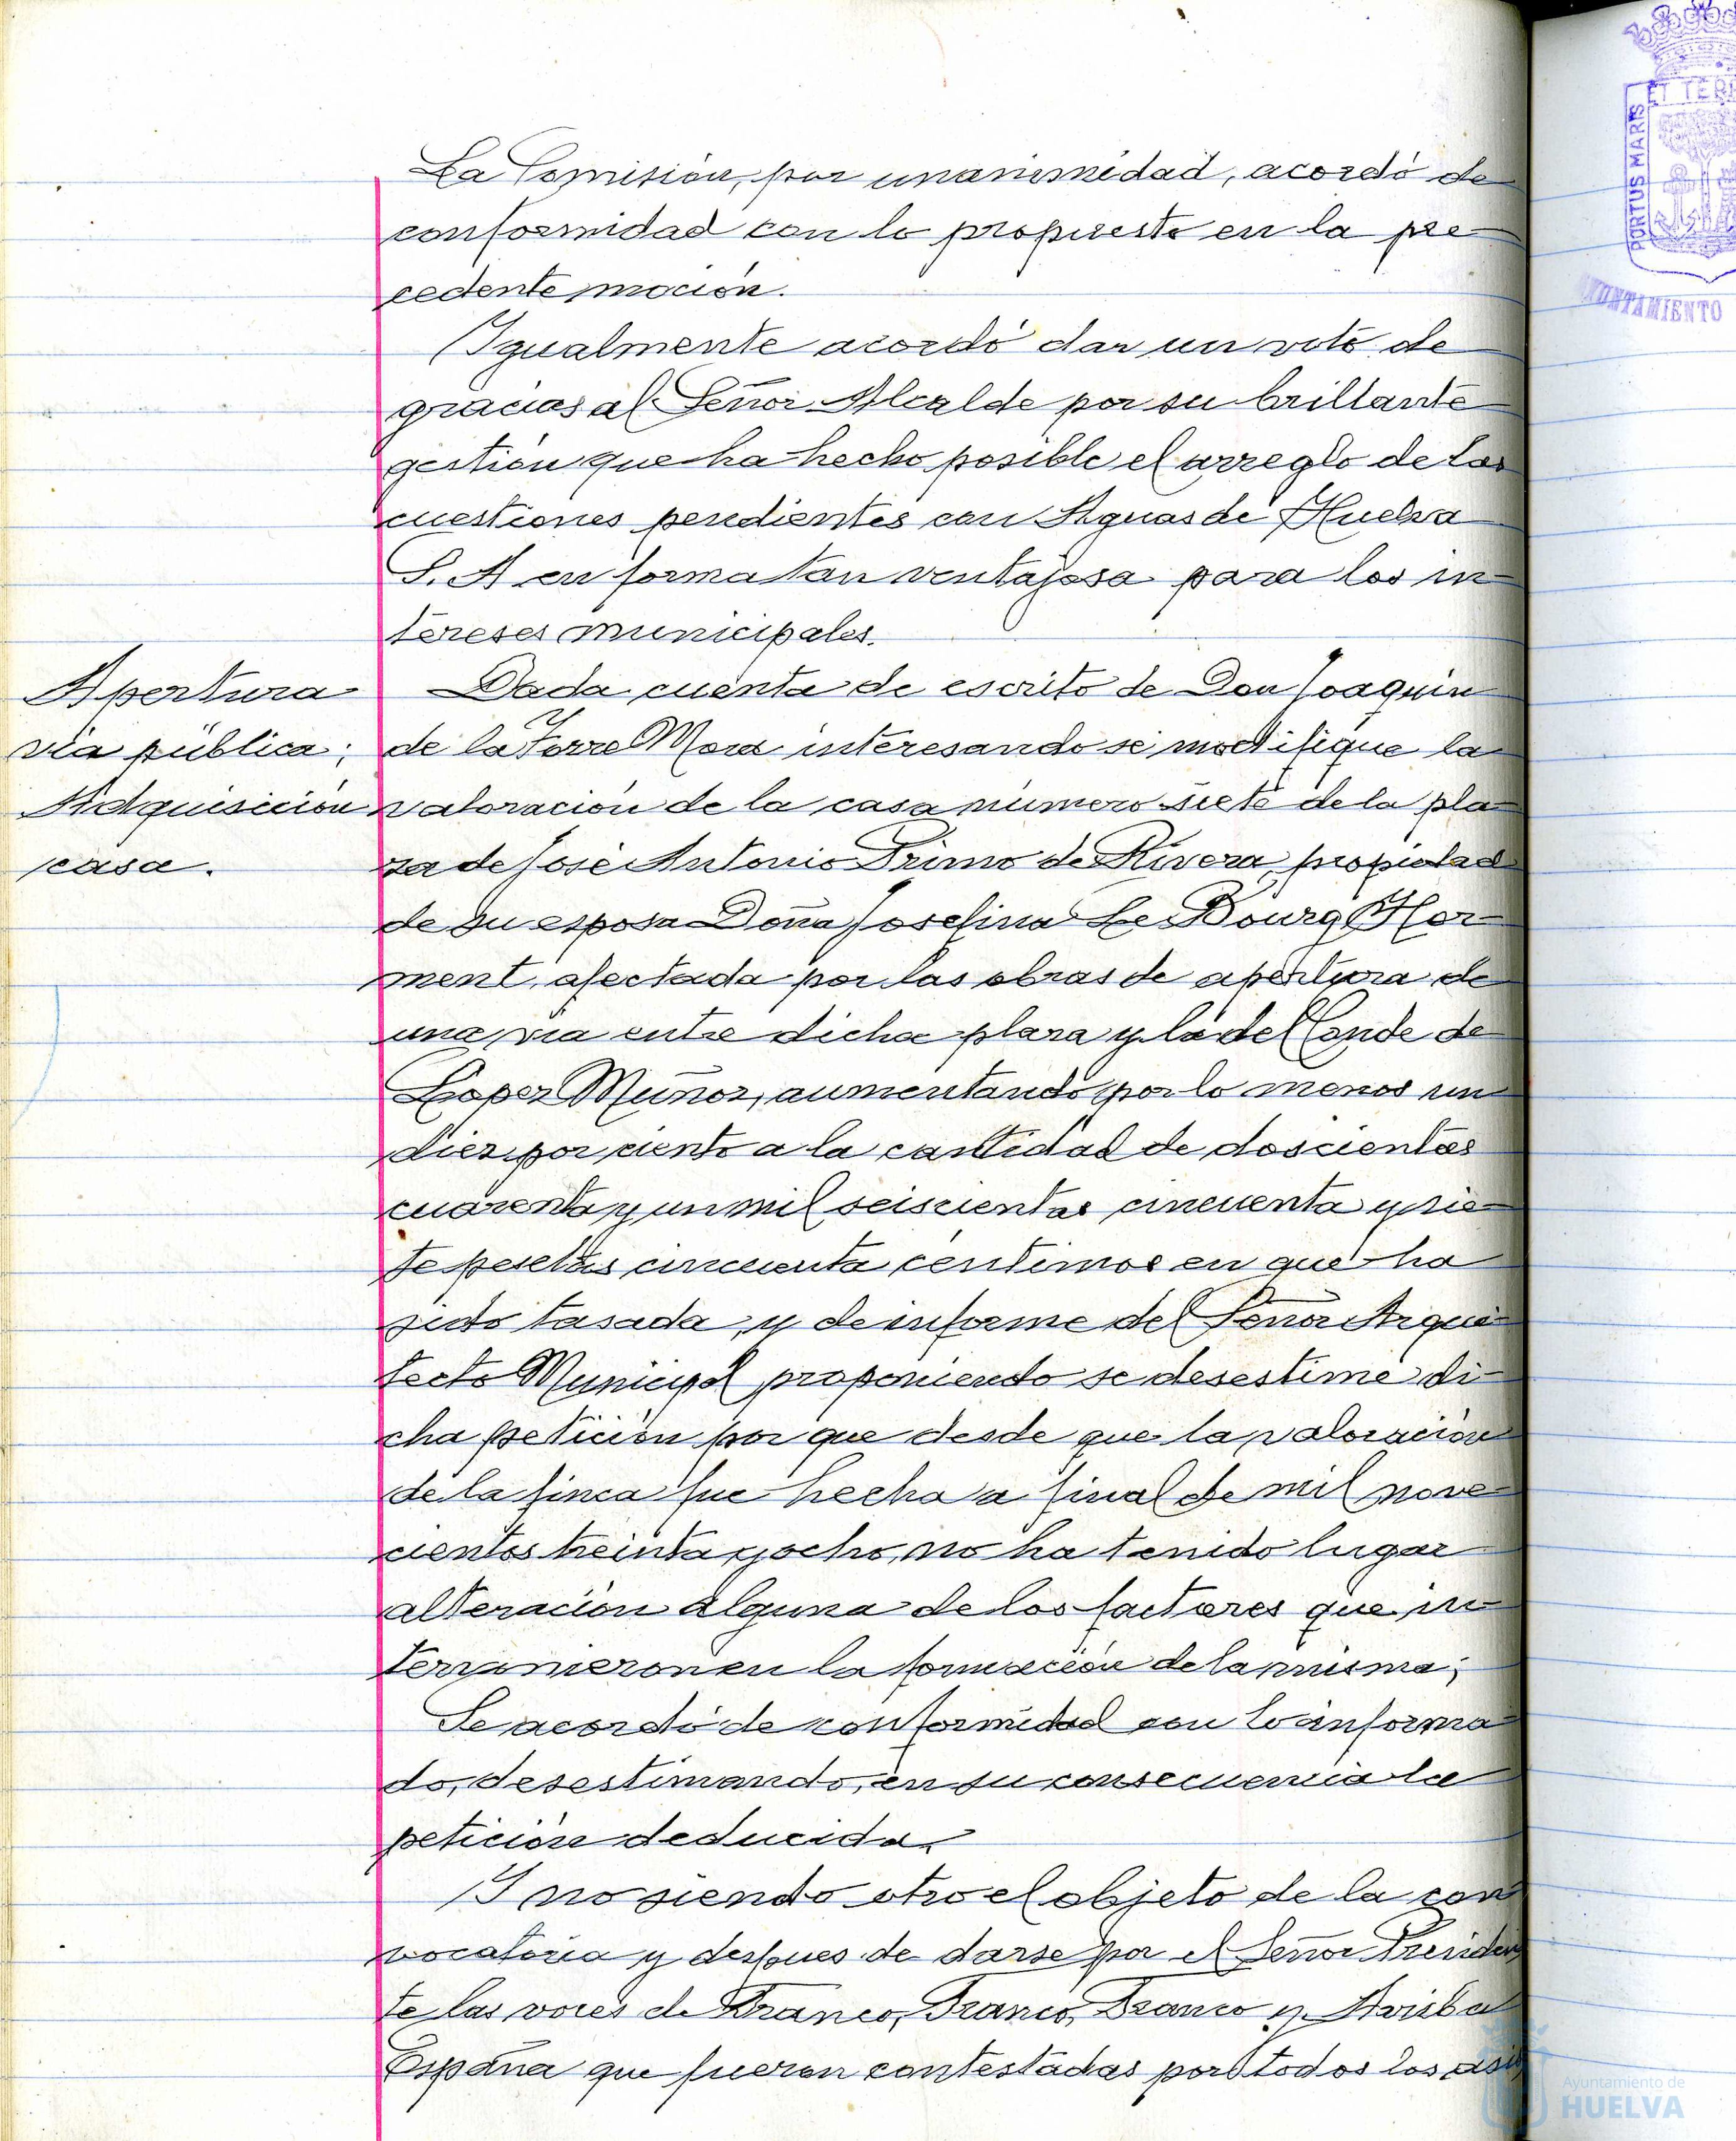 La Comisión, por unanimidad, acordó de
conformidad con lo propuesto en la pre
cedente moción.
Igualmente acordó dar un voto de
gracias al Señor Alcalde por su brillante
gestión que ha hecho posible el arreglo de las
cuestiones pendientes con Aguas de Huelva
S. A en forma tan ventajosa para los in-
tereses municipales.
Apertura
vía pública;
Adquisición
casa.
Dada cuenta de escrito de Don Joaquin
de la Torre Mora interesando se modifique la
valoración de la casa número siete de la pla-
za de José Antonio Primo de Rivera, propiedad
de su esposa Doña Josefina Le Bourg Hor-
ment, afectada por las obras de apertura de
una vía entre dicha plaza y la del Conde de
López Muñoz, aumentando por lo menos un
diez por ciento a la cantidad de doscientas
cuarenta y un mil seiscientas cincuenta y sie-
te pesetas cincuenta centimos en que ha
sido tasada, y de informe del Señor Arqui-
tecto Municipal proponiendo se desestime di-
cha petición por que desde que la valoración
de la finca fue hecha a final de mil nove-
cientos treinta y ocho, no ha tenido lugar
alteración alguna de los factores que in-
tervinieron en la formación de la misma;
Se acordó de conformidad con lo informa-
do, desestimando, en su consecuencia la
petición deducida.
Y no siendo otro el objeto de la con
vocatoria y despues de darse por el Señor Presiden
te las voces de Franco, Franco, Franco y Arriba
España que fueron contestadas por todos los asis
PORTUS MARIS
ET TER
AYUNTAMIENTO
Ayuntamiento de
HUELVA